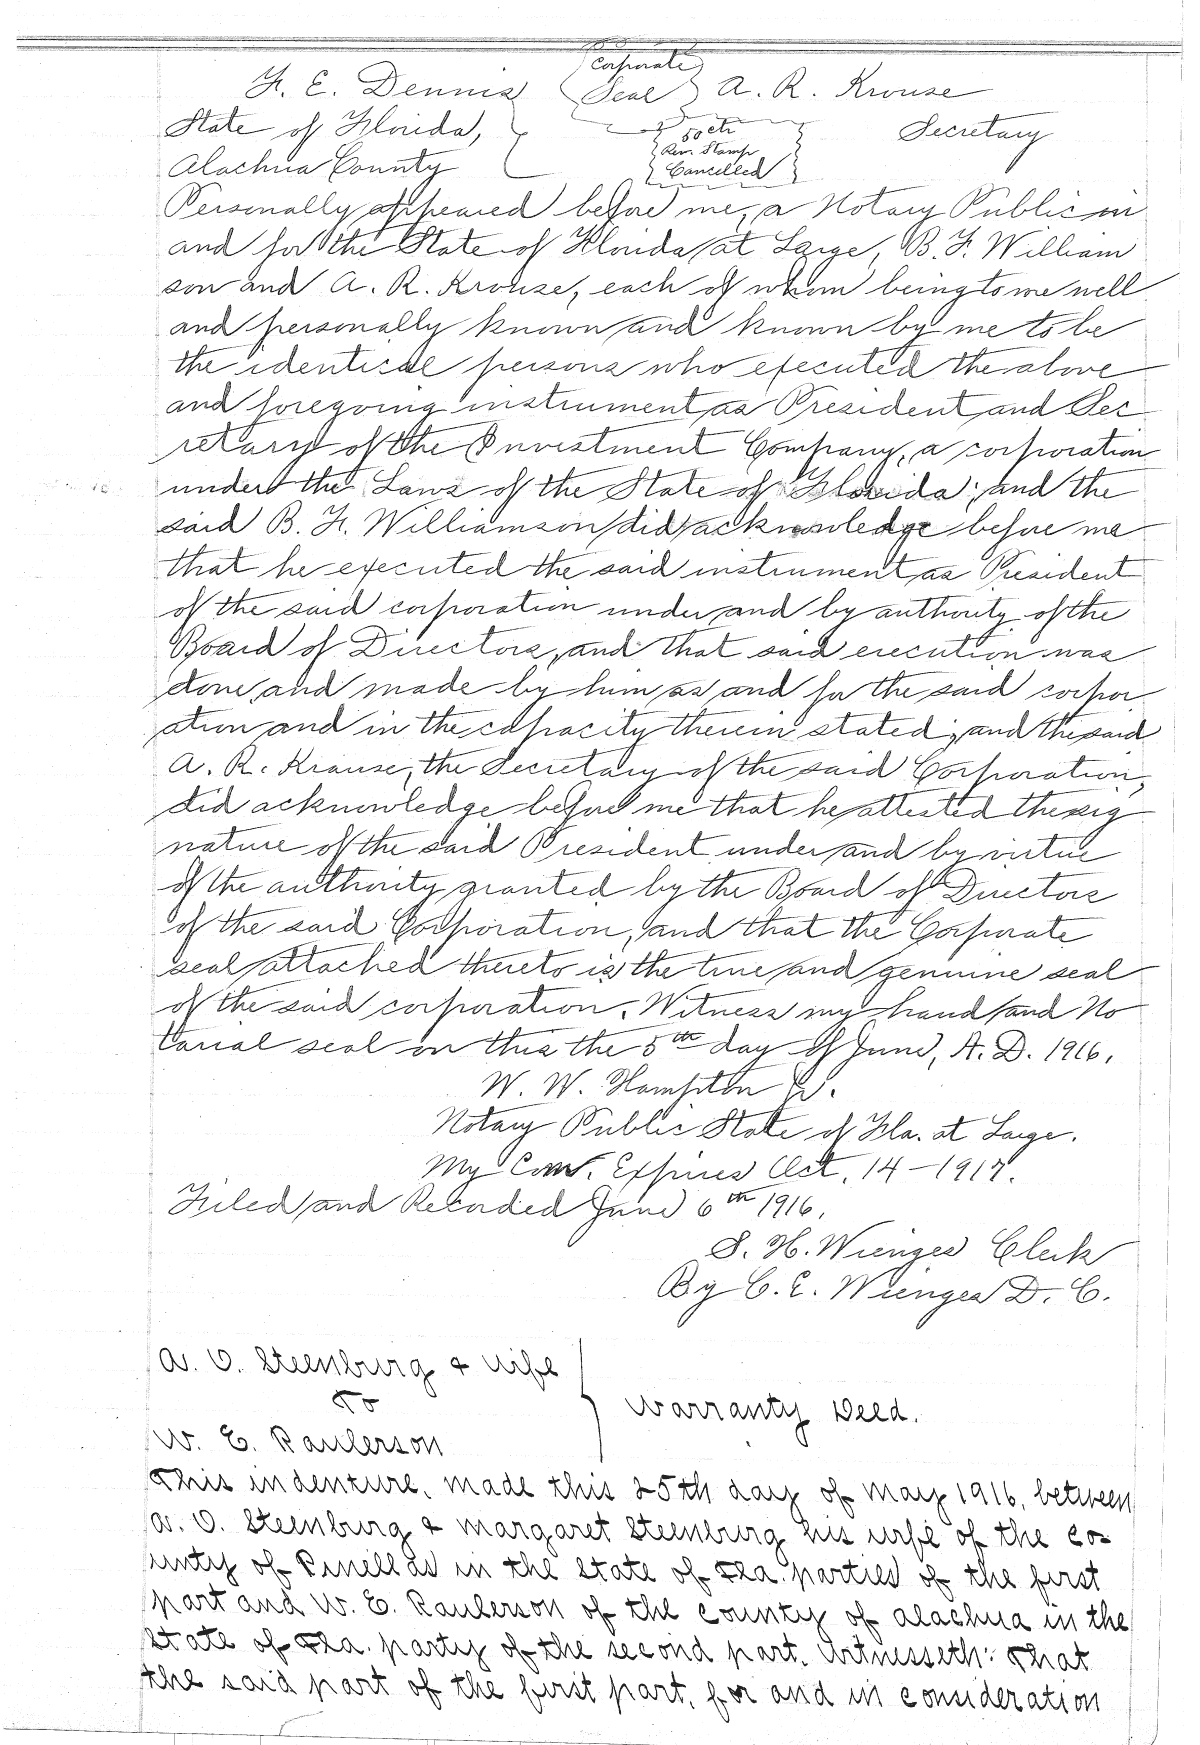 F. E. Dennis Corporate Seal A. R. Krouse
State of Florida, 50 cts Secretary
Rev. Stamp
Alachua County Cancelled
Personally appeared before me, a Notary Public in
and for the State of Florida at Large, B. F. William
son and A. R. Krouse, each of whom being to me well
and personally known and known by me to be
the identical persons who executed the above
and foregoing instrument as President and Sec
retary of the Investment Company, a corporation
under the Laws of the State of Florida; and the
said B. F. Williamson did acknowledge before me
that he executed the said instrument as President
of the said corporation under and by authority of the
Board of Directors, and that said execution was
done and made by him as and for the said corpor
ation and in the capacity therein stated; and the said
A. R. Krause, the Secretary of the said Corporation,
did acknowledge before me that he attested the sig
nature of the said President under and by virtue
of the authority granted by the Board of Directors
of the said Corporation, and that the Corporate
seal attached thereto is the true and genuine seal
of the said corporation. Witness my hand and No
tarial seal on this the 5th day of June, A. D. 1916.
W. W. Hampton Jr.
Notary Public State of Fla. at Large.
My Com. Expires Oct. 14-1917.
Filed and Recorded June 6th 1916.
S. H. Wienges Clerk
By C. E. Wienges D. C.
A. O. Steenburg & wife
To
Warranty Deed.
W. E. Raulerson
This indenture, made this 25th day of May 1916, between
A. O. Steenburg & Margaret Steenburg his wife of the co-
unty of Pinellas in the State of Fla. parties of the first
part and W. E. Raulerson of the county of Alachua in the
State of Fla. party of the second part. Witnesseth: That
the said part of the first part, for and in consideration